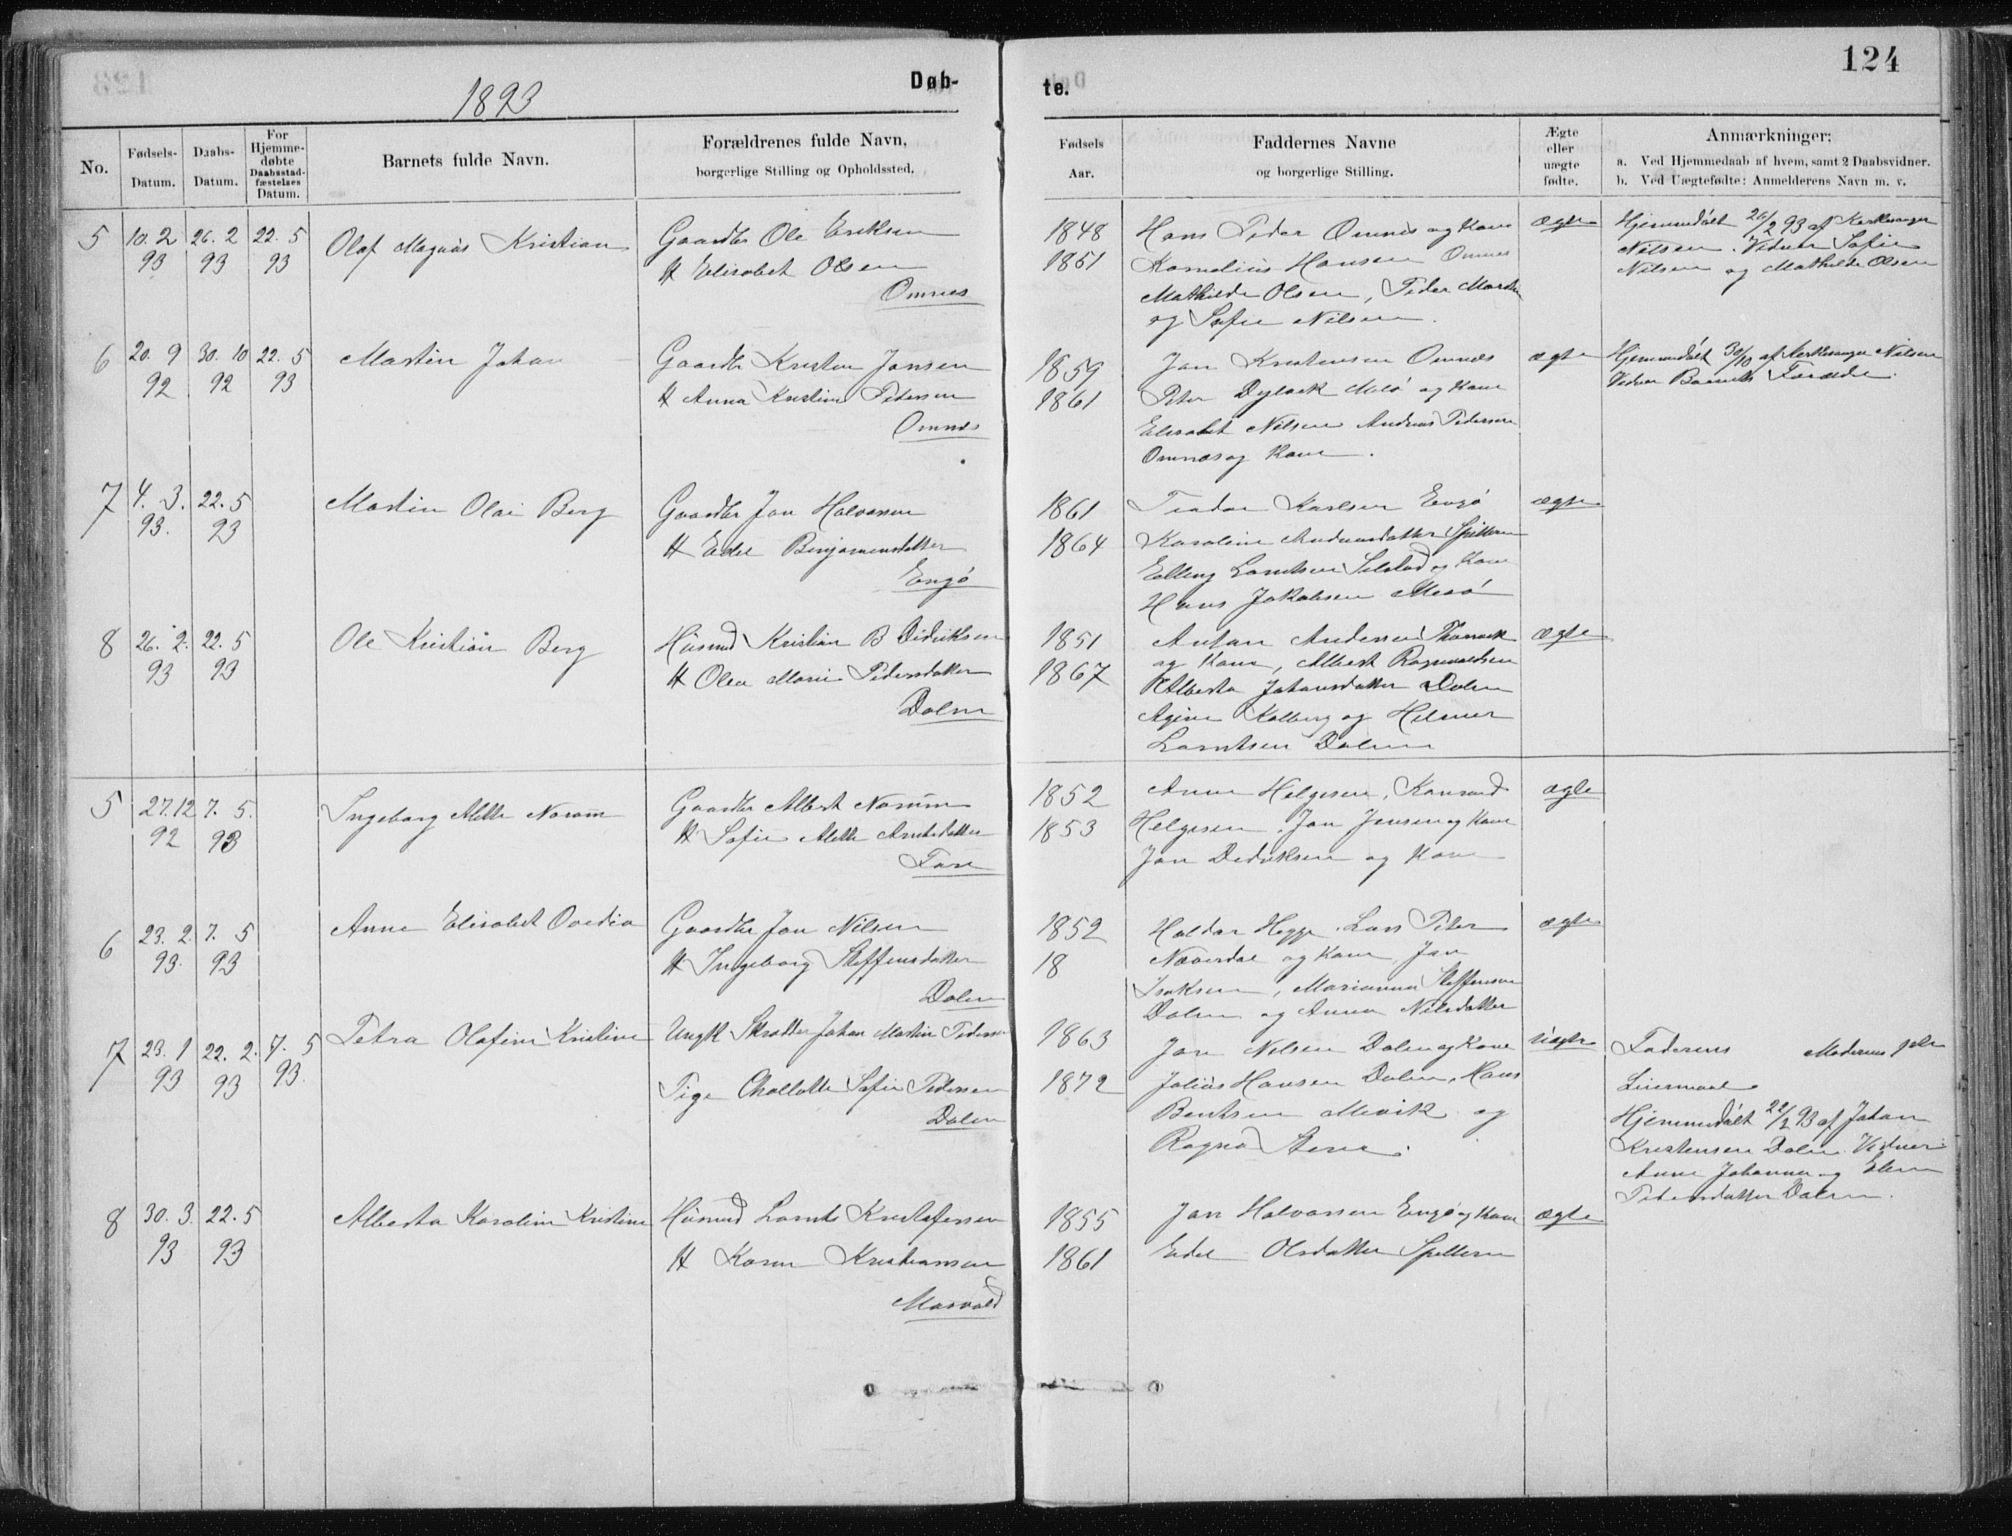 124
1893
Døb-
te.
No.
Fødsels-
Datum.
Daabs-
Datum.
For
Hjemme-
døbte
Daabsstad-
fæstelses
Datum.
Barnets fulde Navn.
Forældrenes fulde Navn,
borgerlige Stilling og Opholdssted.
Fødsels
Aar.
Faddernes Navne
og borgerlige Stilling.
Ægte
eller
uægte
fødte.
Anmærkninger:
a. Ved Hjemmedaab af hvem, samt 2 Daabsvidner.
b. Ved Uægtefødte: Anmelderens Navn m. v.
5 10. 2 26. 2 22. 5
93 93 93
Olaf Magnus Kristian
Gaardbr Ole Eriksen
H Elisabet Olsen
Omnes
1848
1851
Hans Peder Omnes og Kone
Kornelius Hansen Omnes
Mathilde Olsen, Peder Martin
og Sofie Nilsen.
ægte
Hjemmedøbt 26/2 93 af Kirkesanger
Nilsen. Vidner Sofie
Nilsen og Mathilde Olsen
6 20. 9 30. 10 22. 5
92 92 93
Martin Johan
Gaardbr Kristen Jansen
H Anna Kristine Pedersen
Omnes
1859
1861
Jan Kristensen Omnes
Peter Mesø og Kone
Elisabet Nilsen Andreas Pedersen
Omnes og Kone.
ægte
Hjemmedøbt 30/10 af Kirkesanger Nilsen
Vidner Barnets Forældre.
7 4. 3. 22. 5
93. 93
Martin Olai Berg
Gaardbr Jan Halvorsen
H Edel Benjaminsdatter
Engø
1861
1864
Teodor Karlsen Engø
Karoline Andreasdatter Spilleren
Elling Lorntsen Selstad og Kone
Hans Jakobsen Mesø
ægte
8 26. 2. 22. 5
93 93
Ole Kristian Berg
Husmd Kristian B Didriksen
H Olea Marie Pedersdatter
Dolen
1851
1867
Anton Andersen
og Kone, Albert Ragnvaldsen
Alberta Johansdatter Dolen
Kolberg og Hilmer
Lorntsen Dolen
ægte
5 27. 12 7. 5.
92 93
Ingeborg Mette Norum
Gaardbr Albert Norum
H Sofie Mette Arntsdatter
1852
1853
Anne Helgesen, Konrad
Helgesen, Jan Jensen og Kone
Jan Didriksen og Kone
ægte
6 23. 2. 7. 5
93. 93
Anne Elisabet Ovedia
Gaardbr Jan Nilsen
H Ingeborg Steffensdatter
Dolen
1852
18
Haldor Hegge. Lars Peter
Næverdal og Kone, Jan
Isaksen, Marianna Steffensen
Dolen og Anna Nilsdatter
ægte
7 23. 1 22. 2. 7. 5
93 93 93.
Petra Olafine Kristine
Ungk Skrædder Johan Martin Pedersen
Pige Charlotte Sofie Pedersen
Dolen
1863
1872
Jan Nilsen Dolen og Kone
Julius Hansen Dolen, Hans
Bentsen Mevik og
Ragna
uægte
Faderens Moderens
Leiermaal
Hjemmedøbt 22/2 93 af Johan
Kristensen Dolen. Vidner:
Anne Johanna og Elen
Pedersdatter Dolen.
8 30. 3. 22. 5
93 93
Alberta Karoline Kristine
Husmd Lornts Kristofersen
H Karen Kristiansen
1855
1861
Jan Halvorsen Engø og Kone
Edel Olsdatter Spilleren
ægte